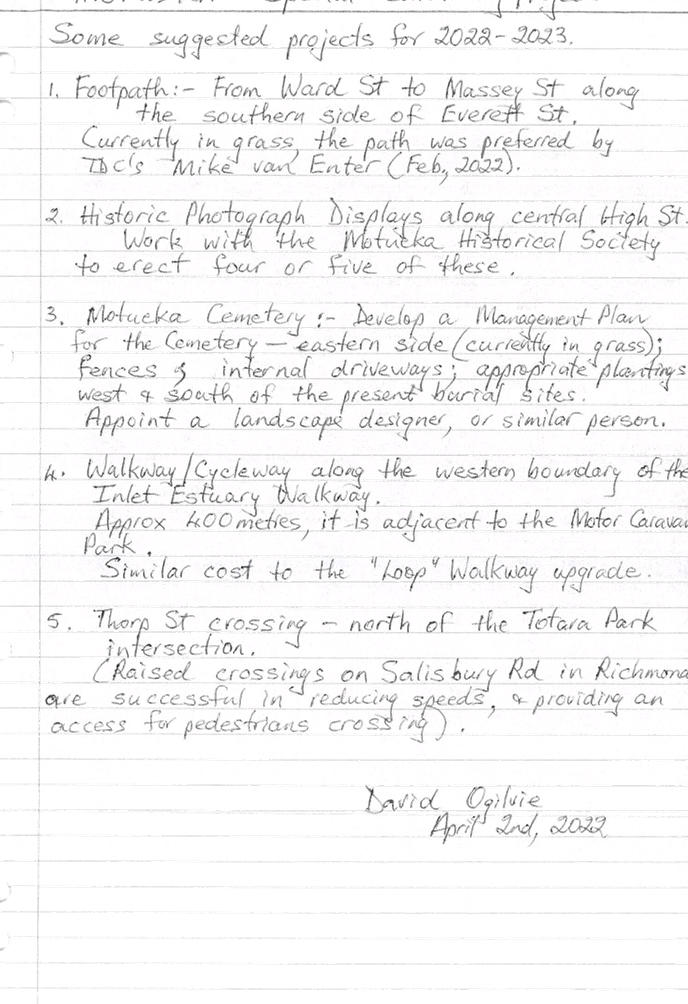 Some suggested projects for 2022-2023.
1. Footpath:- From Ward St to Massey St along
the southern side of Everett St.
Currently in grass, the path was preferred by
TDC's Mike van Enter (Feb, 2022).
2. Historic Photograph Displays along central High St.
Work with the Motueka Historical Society
to erect four or five of these.
3. Motueka Cemetery :- Develop a Management Plan
for the Cemetery - eastern side (currently in grass);
fences & internal driveways; appropriate plantings
west & south of the present burial sites.
Appoint a landscape designer, or similar person.
4. Walkway/Cycleway along the western boundary of the
Inlet Estuary Walkway.
Approx 400 metres, it is adjacent to the Motor Carava
Park.
Similar cost to the "Loop" Walkway upgrade.
5. Thorp St crossing - north of the Totara Park
intersection.
(Raised crossings on Salisbury Rd in Richmond
are successful in reducing speeds, & providing an
access for pedestrians crossing).
David Ogilvie
April 2nd, 2022